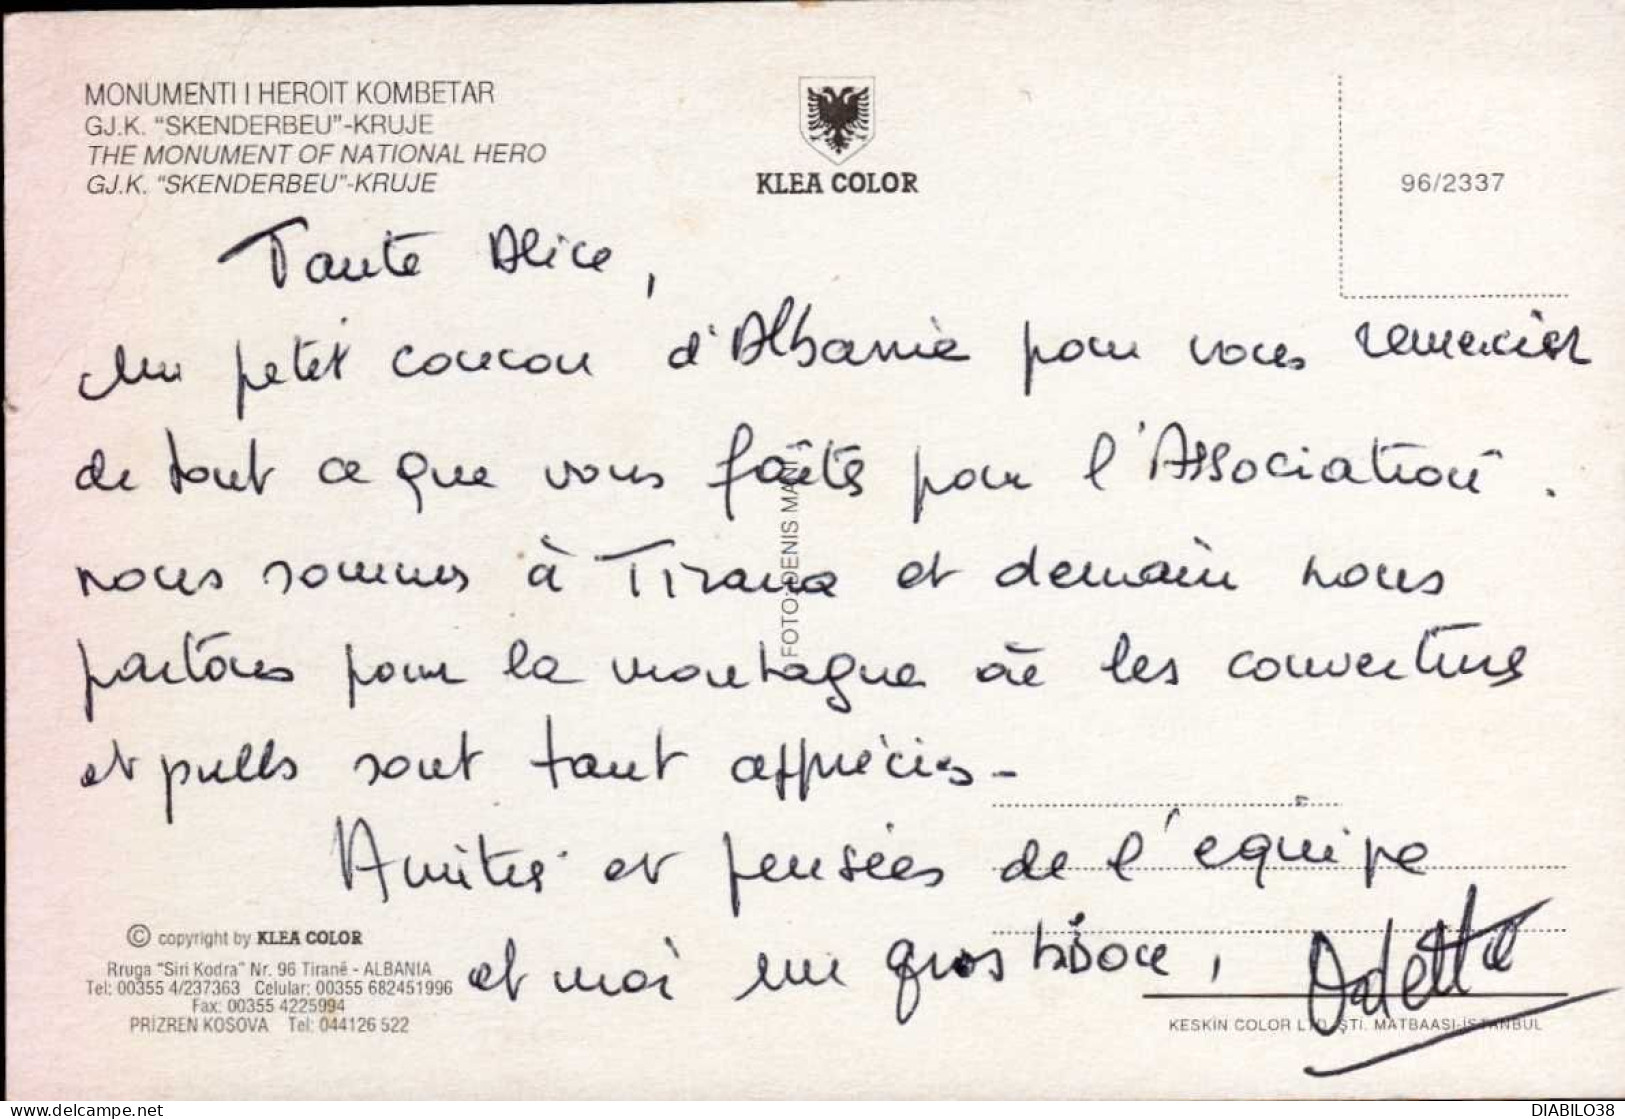 MONUMENTI I HEROIT KOMBETAR
GJ.K. "SKENDERBEU"-KRUJE
THE MONUMENT OF NATIONAL HERO
GJ.K. "SKENDERBEU"-KRUJE
KLEA COLOR
96/2337
Tante Alice,
Un petit coucou d'Albanie pour vous remercier
de tout ce que vous faites pour l'Association.
nous sommes à Tirana et demain nous
partons pour la montagne où les couvertures
et pulls sont tant appréciés -
Amitié et pensées de l'équipe
et moi un gros bisou, Odette
FOTO: DENIS
© copyright by KLEA COLOR
Rruga "Siri Kodra" Nr. 96 Tiranë - ALBANIA
Tel: 00355 4/237363 Celular: 00355 682451996
Fax: 00355 4225994
PRIZREN KOSOVA Tel: 044126 522
KESKİN COLOR LTD. ŞTİ. MATBAASI-İSTANBUL
www.delcampe.net
DIABILO38